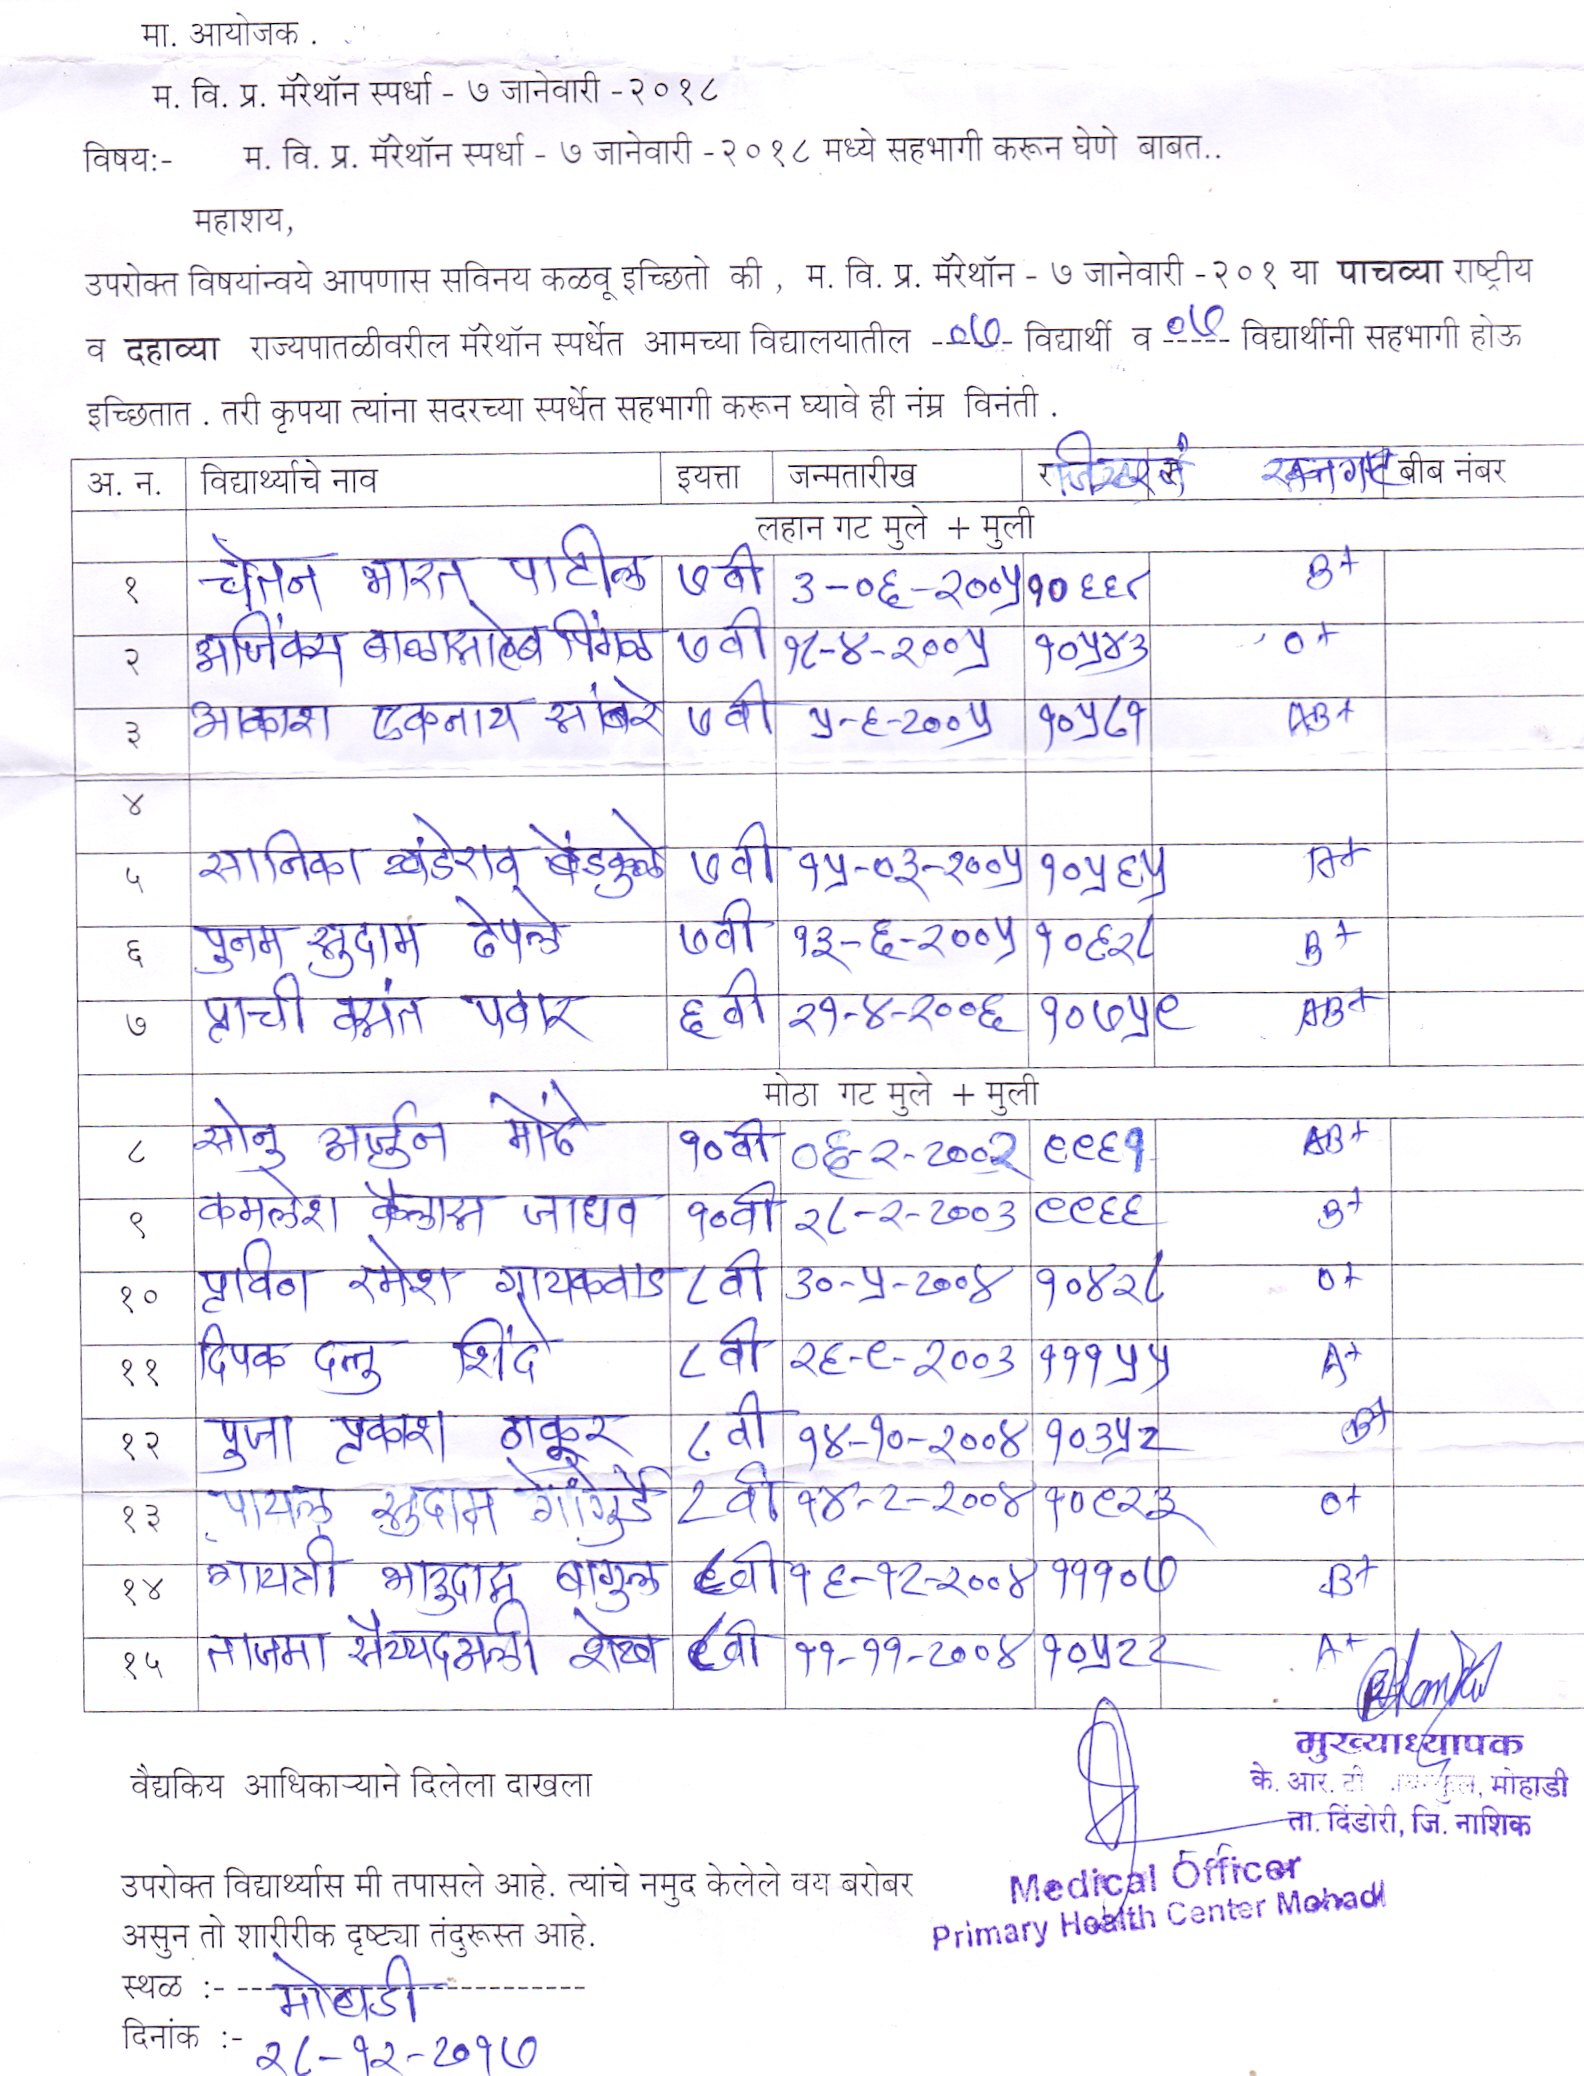 मा. आयोजक .
म. वि. प्र. मॅरेथॉन स्पर्धा - ७ जानेवारी -२०१८
विषय:- म. वि. प्र. मॅरेथॉन स्पर्धा - ७ जानेवारी -२०१८ मध्ये सहभागी करून घेणे बाबत..
महाशय,
उपरोक्त विषयांन्वये आपणास सविनय कळवू इच्छितो की , म. वि. प्र. मॅरेथॉन - ७ जानेवारी -२०१ या पाचव्या राष्ट्रीय
व दहाव्या राज्यपातळीवरील मॅरेथॉन स्पर्धेत आमच्या विद्यालयातील ०७ विद्यार्थी व ०७ विद्यार्थीनी सहभागी होऊ
इच्छितात . तरी कृपया त्यांना सदरच्या स्पर्धेत सहभागी करून घ्यावे ही नंम्र विनंती .
अ. न. विद्यार्थ्याचे नाव इयत्ता जन्मतारीख रजिस्टर नं रक्तगट बीब नंबर
लहान गट मुले + मुली
१ चेतन भारत पाटील ७वी ३-०६-२००५ १०६६८ B+
२ अजिंक्य बाळासाहेब पिंगळ ७वी १८-४-२००५ १०५४३ O+
३ आकाश एकनाथ सांबरे ७वी ५-६-२००५ १०५८१ AB+
४
५ सानिका खंडेराव बेंडकुळे ७वी १५-०३-२००५ १०५६५ A+
६ पुनम सुदाम ढेपले ७वी १३-६-२००५ १०६२८ B+
७ प्राची वसंत पवार ६वी २१-४-२००६ १०७५९ AB+
मोठा गट मुले + मुली
८ सोनु अर्जुन मोंढे १०वी ०६-२-२००२ ९९६१ AB+
९ कमलेश कैलास जाधव १०वी २८-२-२००३ ९९६६ B+
१० प्रविण रमेश गायकवाड ८वी ३०-५-२००४ १०४२८ O+
११ दिपक दत्तु शिंदे ८वी २६-९-२००३ १११५५ A+
१२ पुजा प्रकाश ठाकूर ८वी १४-१०-२००४ १०३५२ B+
१३ पायल सुदाम गांगुर्डे ८वी १४-८-२००४ १०९२३ O+
१४ गायत्री भाऊदास बागुल ८वी १६-१२-२००४ १११०७ B+
१५ ताजमा सैय्यदअली शेख ८वी ११-११-२००४ १०५२२ A+
मुख्याध्यापक
के. आर. टी , मोहाडी
ता. दिंडोरी, जि. नाशिक
वैद्यकिय आधिकाऱ्याने दिलेला दाखला
Medical Officer
Primary Health Center Mohadi
उपरोक्त विद्यार्थ्यास मी तपासले आहे. त्यांचे नमुद केलेले वय बरोबर
असुन तो शारीरीक दृष्ट्या तंदुरूस्त आहे.
स्थळ :- मोहाडी
दिनांक :- २८-१२-२०१७